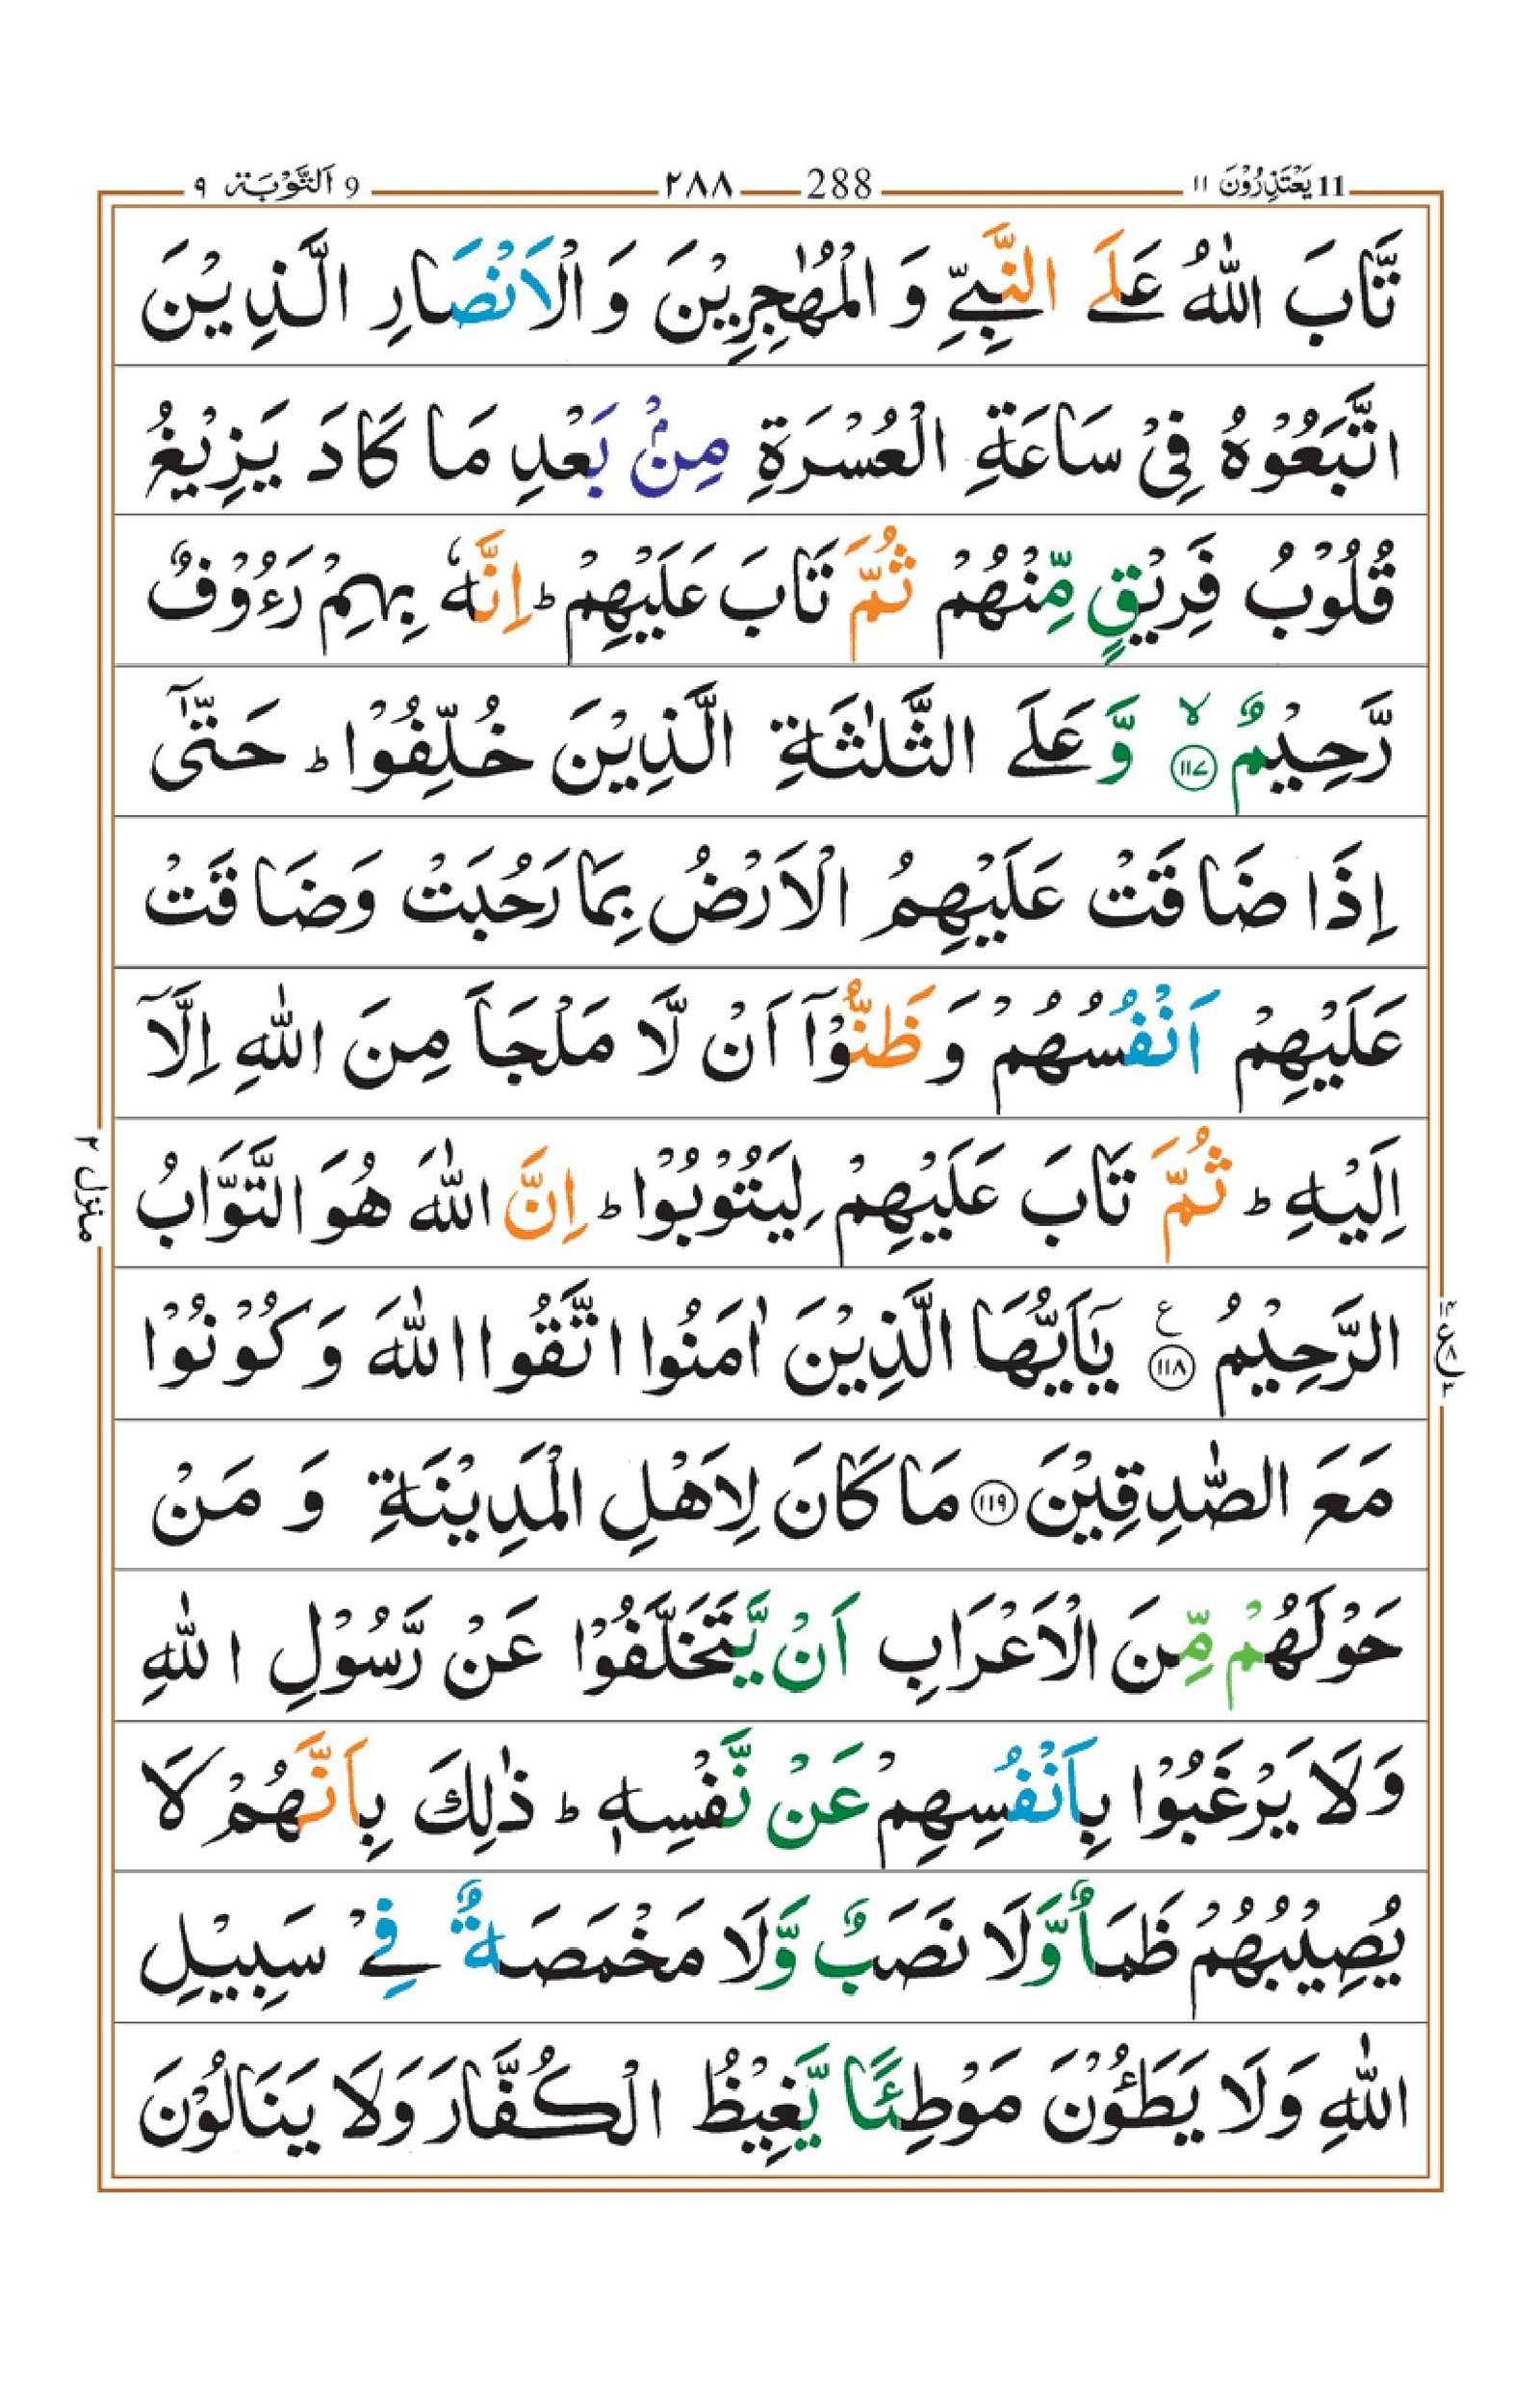 11 يَعْتَذِرُوْنَ ١١ 288 ٢٨٨ 9 اَلتَّوْبَة ٩
تَّابَ اللّٰهُ عَلَى النَّبِيِّ وَ الْمُهٰجِرِيْنَ وَ الْاَنْصَارِ الَّذِيْنَ
اتَّبَعُوْهُ فِيْ سَاعَةِ الْعُسْرَةِ مِنْۢ بَعْدِ مَا كَادَ يَزِيْغُ
قُلُوْبُ فَرِيْقٍ مِّنْهُمْ ثُمَّ تَابَ عَلَيْهِمْ ؕ اِنَّهٗ بِهِمْ رَءُوْفٌ
رَّحِيْمٌ ۙ ﴿١١٧﴾ وَّ عَلَى الثَّلٰثَةِ الَّذِيْنَ خُلِّفُوْا ؕ حَتّٰۤى
اِذَا ضَاقَتْ عَلَيْهِمُ الْاَرْضُ بِمَا رَحُبَتْ وَضَاقَتْ
عَلَيْهِمْ اَنْفُسُهُمْ وَ ظَنُّوْۤا اَنْ لَّا مَلْجَاَ مِنَ اللّٰهِ اِلَّاۤ
اِلَيْهِ ؕ ثُمَّ تَابَ عَلَيْهِمْ لِيَتُوْبُوْا ؕ اِنَّ اللّٰهَ هُوَ التَّوَّابُ
الرَّحِيْمُ ﴿١١٨﴾ ع يٰۤاَيُّهَا الَّذِيْنَ اٰمَنُوا اتَّقُوا اللّٰهَ وَ كُوْنُوْا
مَعَ الصّٰدِقِيْنَ ﴿١١٩﴾ مَا كَانَ لِاَهْلِ الْمَدِيْنَةِ وَ مَنْ
حَوْلَهُمْ مِّنَ الْاَعْرَابِ اَنْ يَّتَخَلَّفُوْا عَنْ رَّسُوْلِ اللّٰهِ
وَلَا يَرْغَبُوْا بِاَنْفُسِهِمْ عَنْ نَّفْسِهٖ ؕ ذٰلِكَ بِاَنَّهُمْ لَا
يُصِيْبُهُمْ ظَمَاٌ وَّلَا نَصَبٌ وَّلَا مَخْمَصَةٌ فِيْ سَبِيْلِ
اللّٰهِ وَلَا يَطَـُٔوْنَ مَوْطِئًا يَّغِيْظُ الْكُفَّارَ وَلَا يَنَالُوْنَ
منزل ٢
١٤ ع ٨ ٣